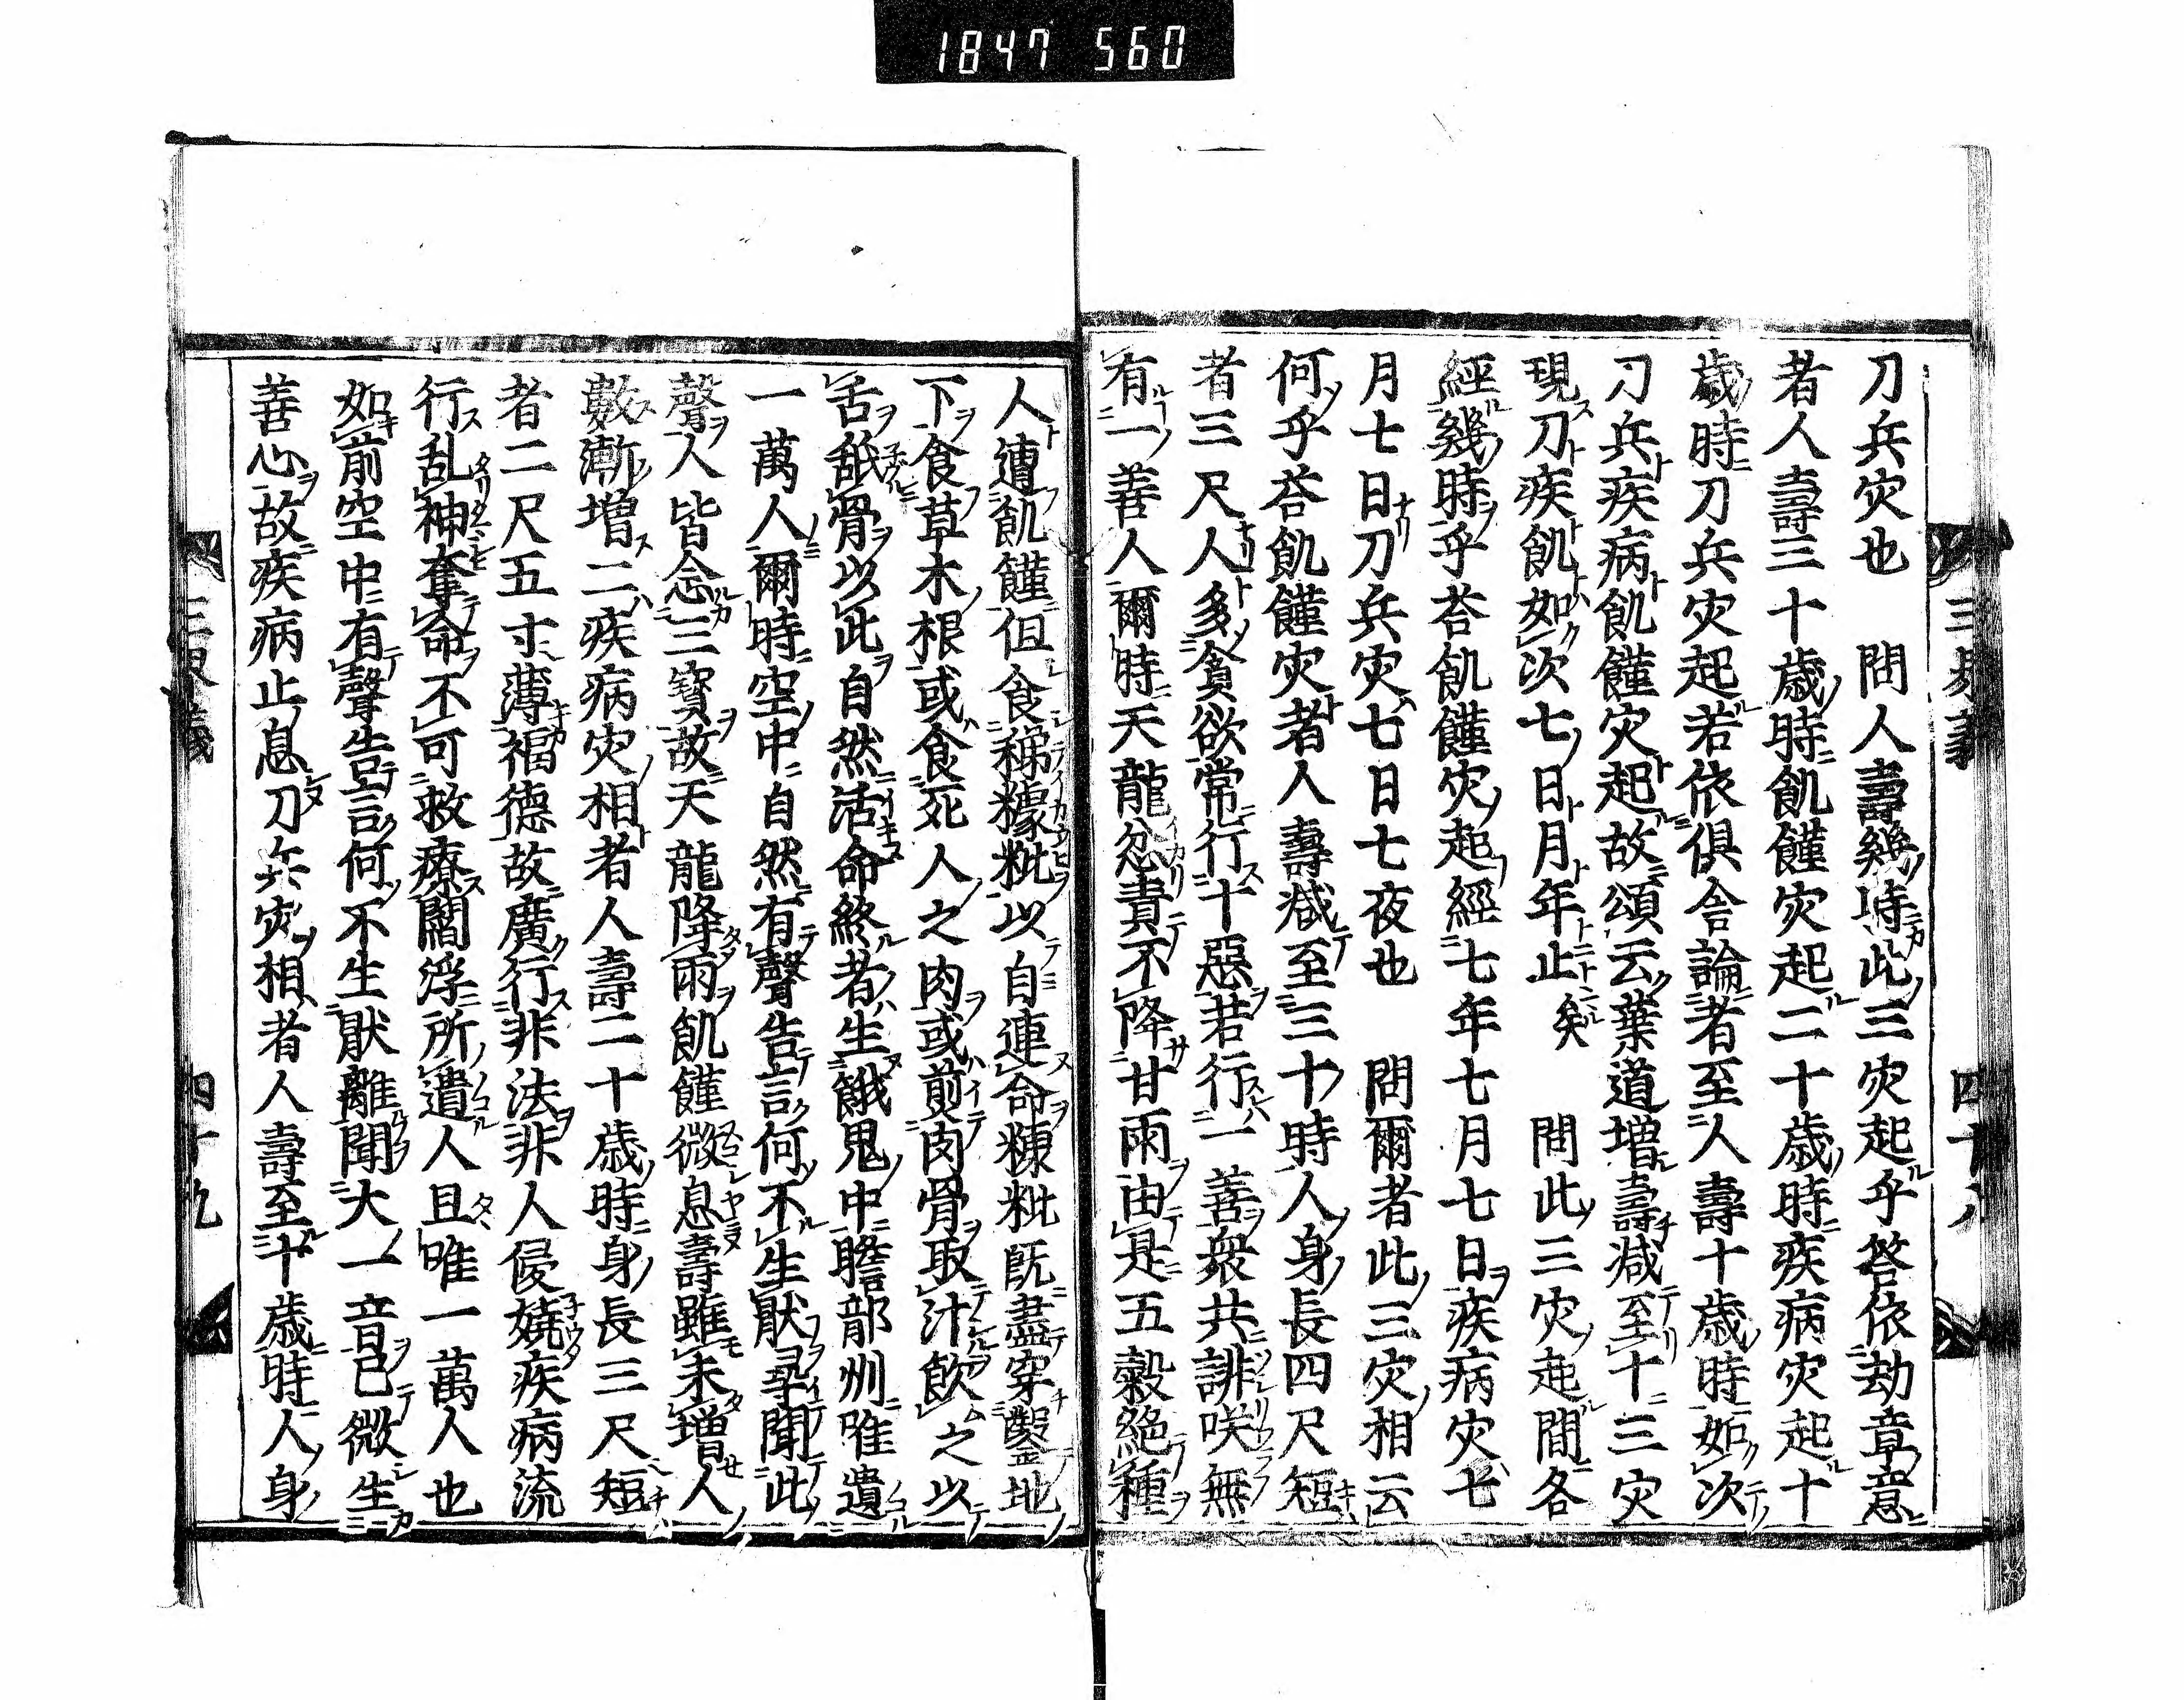 1847 560
刀兵灾也　問人壽幾時此三灾起乎答依劫章意
者人壽三十歳時飢饉灾起二十歳時疾病灾起十
歳時刀兵灾起若依倶舎論者至人壽十歳時如次
刀兵疾病飢饉灾起故頌云業道増壽減至十三灾
現刀疾飢如次七日月年止矣　問此三灾起間各
經幾時乎荅飢饉灾起經七年七月七日疾病灾七
月七日刀兵灾七日七夜也　問爾者此三灾相云
何乎荅飢饉灾者人壽減至三十時人身長四尺短
者三尺人多貪欲常行十惡若行一善衆共誹咲無
有一善人爾時天龍忿責不降甘雨由是五穀絶種
人遭飢饉但食稊𥢶粃以自連命糠粃既盡穿鑿地
下食草木根或食死人之肉或煎肉骨取汁飲之以
舌舐骨以此自然活命終者生餓鬼中贍部州唯遺
一萬人爾時空中自然有聲告言何不生猒尋聞此
聲人皆念三寶故天龍降雨飢饉微息壽雖未増人
數漸増二疾病灾相者人壽二十歳時身長三尺短
者二尺五寸薄福德故廣行非法非人侵嬈疾病流
行乱神奪命不可救療閻浮所遺人且唯一萬人也
如前空中有聲告言何不生猒離聞大一音已微生
善心故疾病止息刀兵灾相者人壽至十歳時人身
四十九